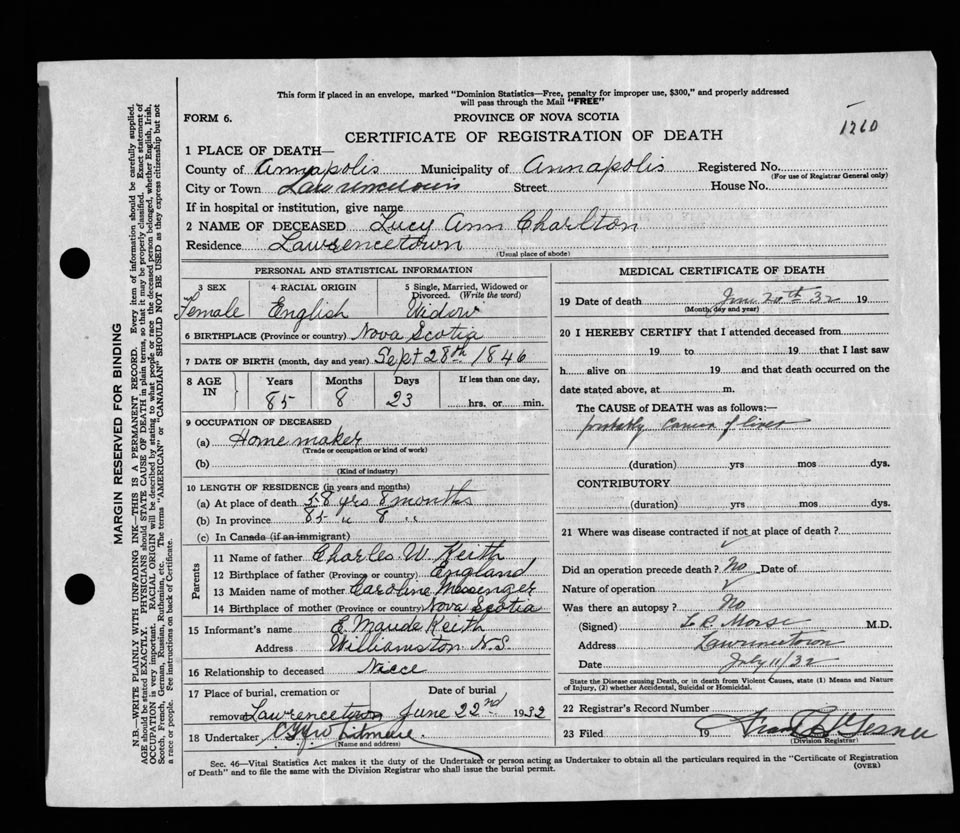 This form if placed in an envelope, marked "Dominion Statistics—Free, penalty for improper use, $300," and properly addressed
will pass through the Mail "FREE"
FORM 6.
PROVINCE OF NOVA SCOTIA
1260
CERTIFICATE OF REGISTRATION OF DEATH
1 PLACE OF DEATH—
County of Annapolis Municipality of Annapolis Registered No.
(For use of Registrar General only)
City or Town Lawrencetown Street House No.
If in hospital or institution, give name
2 NAME OF DECEASED Lucy Ann Charlton
Residence Lawrencetown
(Usual place of abode)
PERSONAL AND STATISTICAL INFORMATION
3 SEX 4 RACIAL ORIGIN 5 Single, Married, Widowed or
Divorced. (Write the word)
Female English Widow
6 BIRTHPLACE (Province or country) Nova Scotia
7 DATE OF BIRTH (month, day and year) Sept 28th 1846
8 AGE IN Years Months Days If less than one day,
85 8 23 hrs. or min.
9 OCCUPATION OF DECEASED
(a) Home maker
(Trade or occupation or kind of work)
(b)
(Kind of industry)
10 LENGTH OF RESIDENCE (in years and months)
(a) At place of death 58 yrs 8 months
(b) In province 85 " 8 "
(c) In Canada (if an immigrant)
Parents
11 Name of father Charles W. Keith
12 Birthplace of father (Province or country) England
13 Maiden name of mother Caroline Messenger
14 Birthplace of mother (Province or country) Nova Scotia
15 Informant's name E. Maude Keith
Address Williamston N.S.
16 Relationship to deceased Niece
17 Place of burial, cremation or Date of burial
removal Lawrencetown June 22nd 1932
18 Undertaker
(Name and address)
MEDICAL CERTIFICATE OF DEATH
19 Date of death June 20th 32 19
(Month, day and year)
20 I HEREBY CERTIFY that I attended deceased from
19 to 19 that I last saw
h alive on 19 and that death occurred on the
date stated above, at m.
The CAUSE of DEATH was as follows:—
probably cancer of liver
(duration) yrs mos dys.
CONTRIBUTORY
(duration) yrs mos dys.
21 Where was disease contracted if not at place of death?
Did an operation precede death? No Date of
Nature of operation
Was there an autopsy? No
(Signed) L R Morse M.D.
Address Lawrencetown
Date July 11/32
State the Disease causing Death, or in death from Violent Causes, state (1) Means and Nature
of Injury, (2) whether Accidental, Suicidal or Homicidal.
22 Registrar's Record Number
23 Filed 19
(Division Registrar)
Sec. 46—Vital Statistics Act makes it the duty of the Undertaker or person acting as Undertaker to obtain all the particulars required in the "Certificate of Registration
of Death" and to file the same with the Division Registrar who shall issue the burial permit.
(OVER)
MARGIN RESERVED FOR BINDING
N.B.—WRITE PLAINLY WITH UNFADING INK—THIS IS A PERMANENT RECORD. Every item of information should be carefully supplied.
AGE should be stated EXACTLY. PHYSICIANS should STATE CAUSE OF DEATH in plain terms, so that it may be properly classified. Exact statement of
OCCUPATION is very important. RACIAL ORIGIN will be described by stating to what people or race the deceased person belonged, whether English, Irish,
Scotch, French, German, Russian, Ruthenian, etc. The terms "AMERICAN" or "CANADIAN" SHOULD NOT BE USED as they express citizenship but not
a race or people. See instructions on back of Certificate.